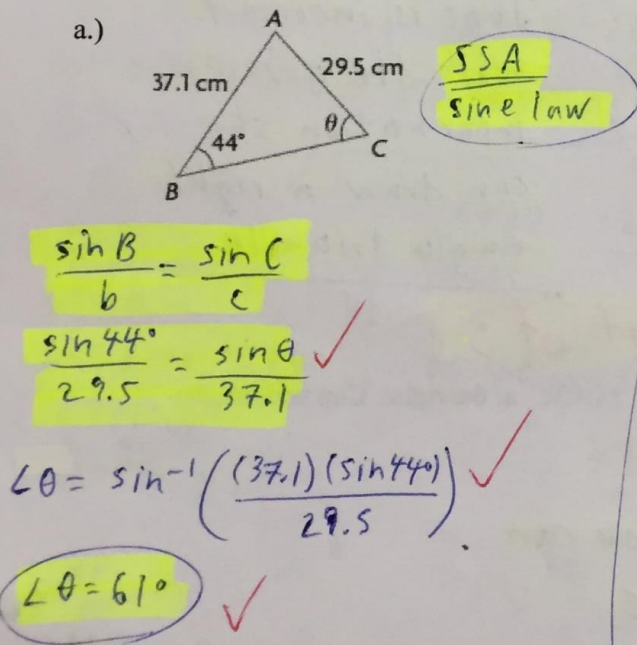 a.)
A
37.1 cm
29.5 cm
44°
θ
B
C
SSA
sine law
sin B / b = sin C / c
sin 44° / 29.5 = sin θ / 37.1
∠θ = sin⁻¹ ( (37.1) (sin 44°) / 29.5 ) .
∠θ = 61°